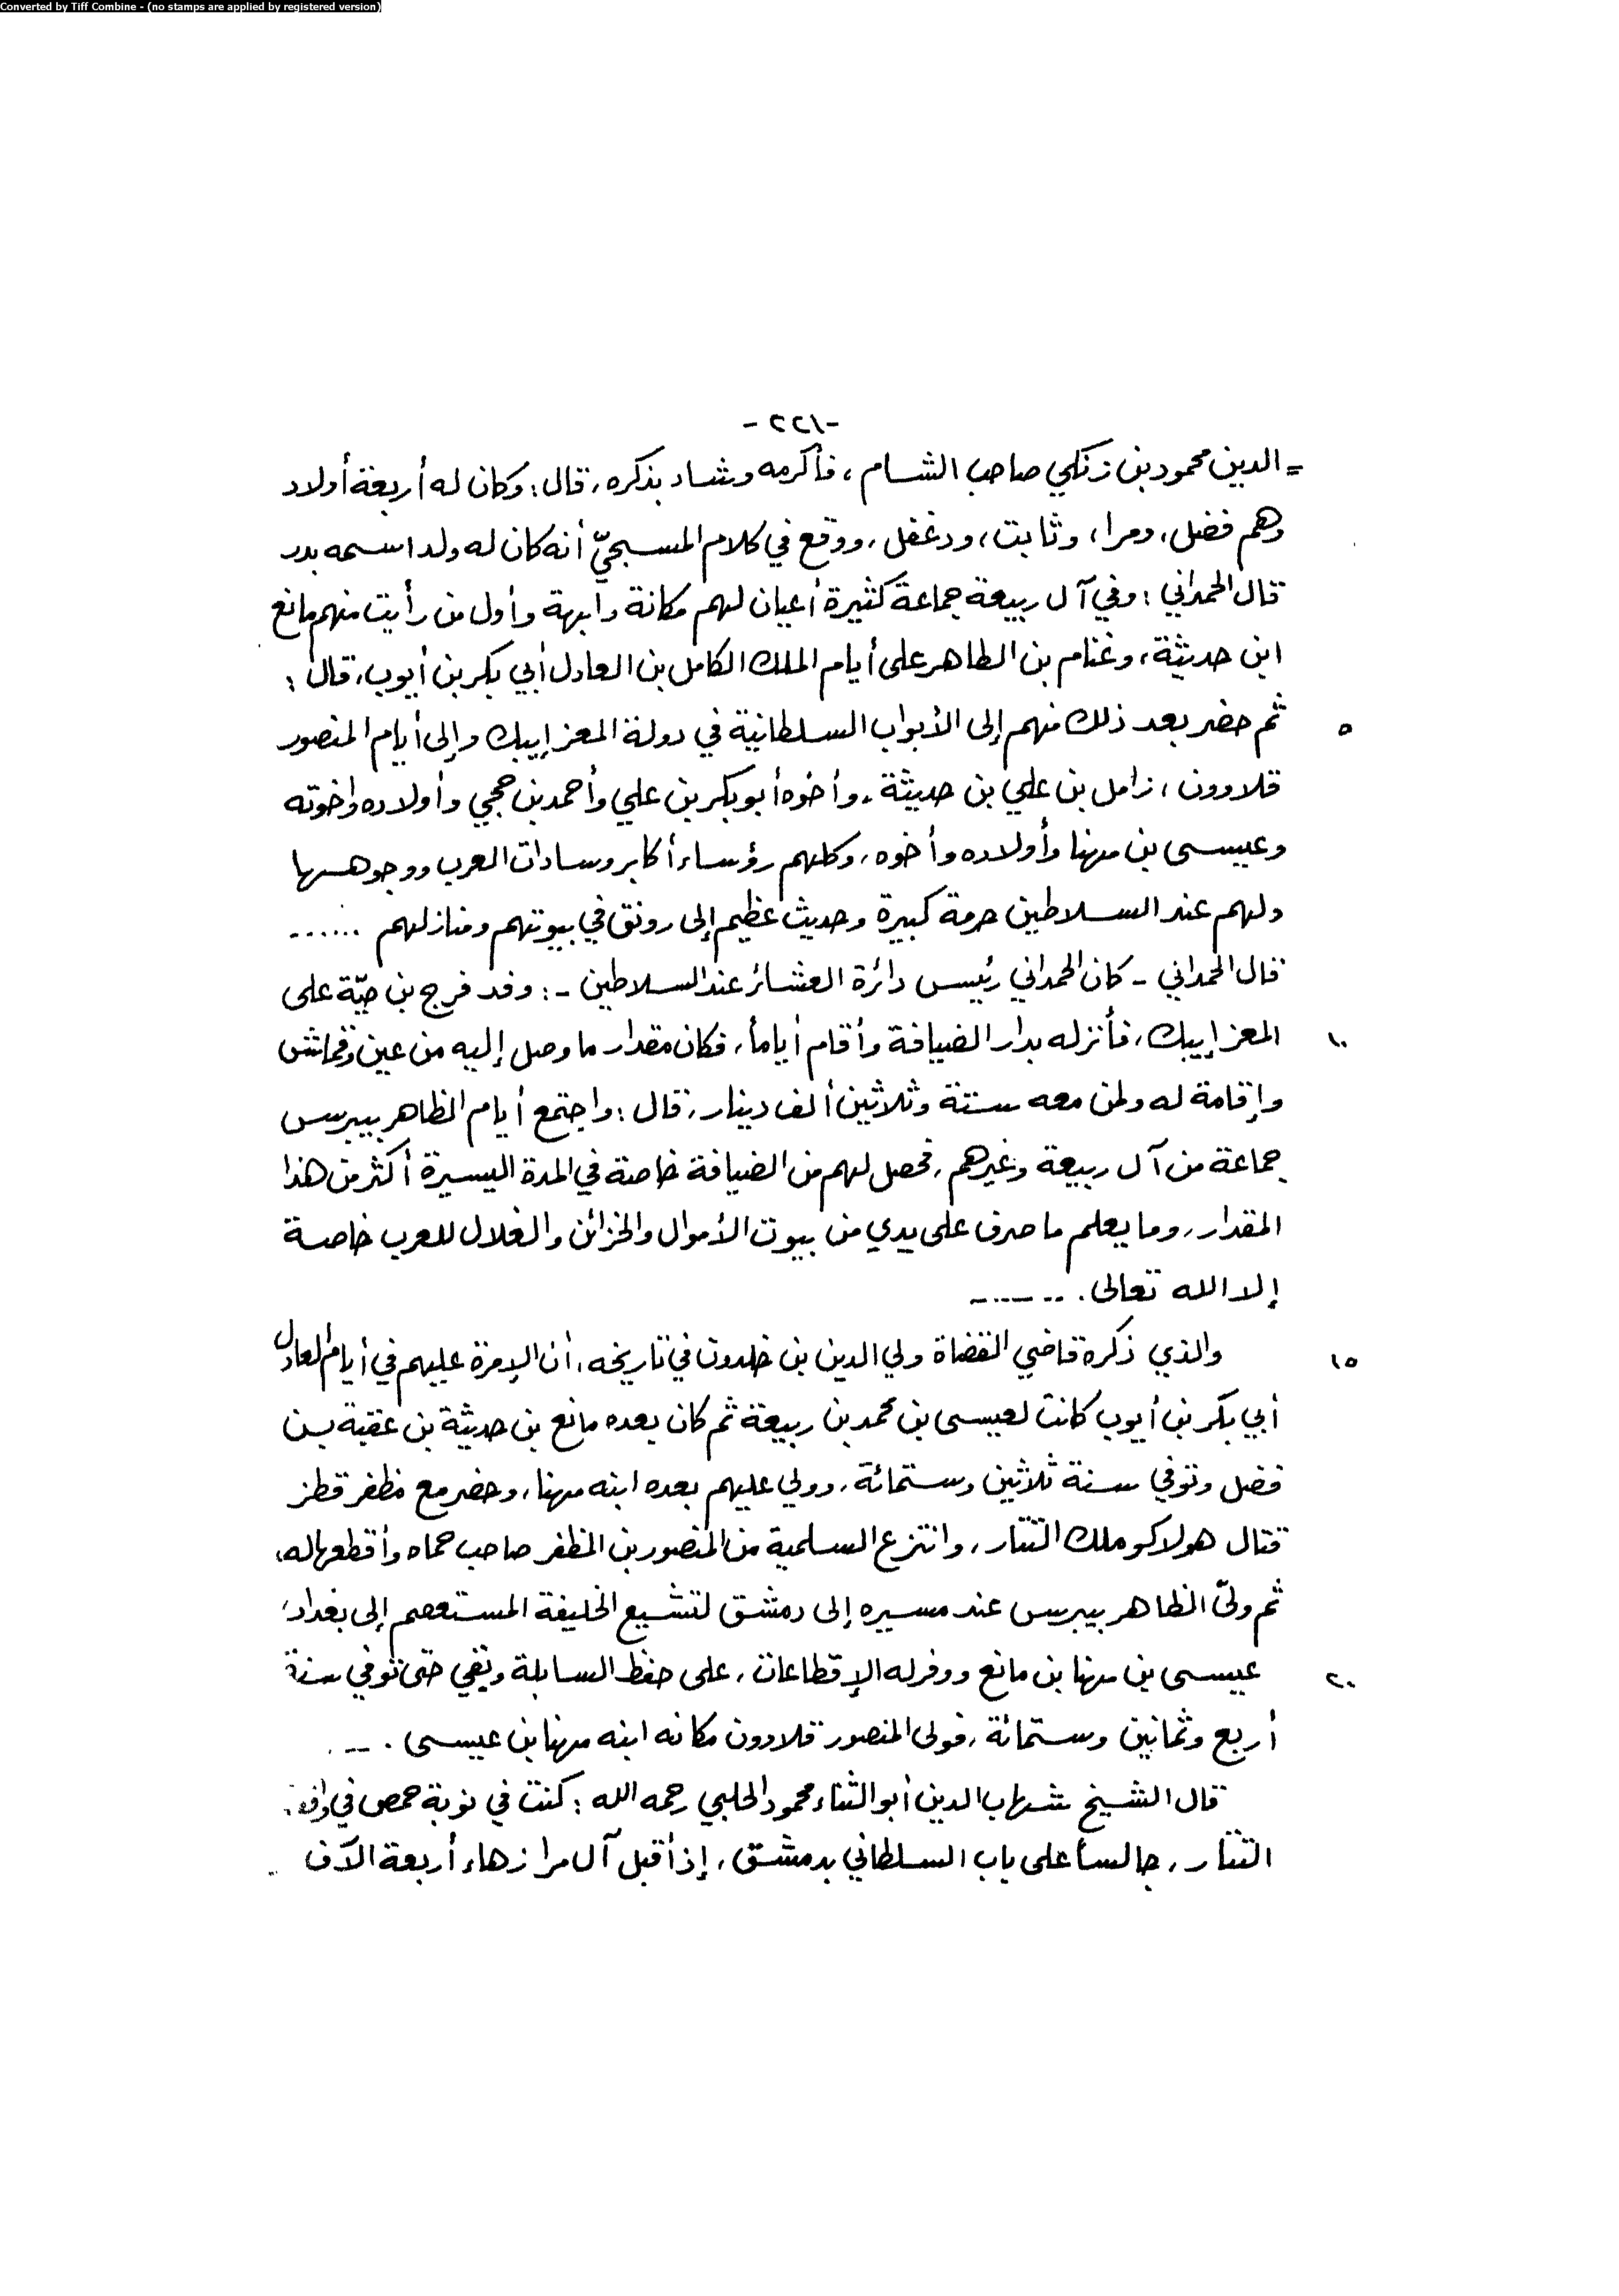 Converted by Tiff Combine - (no stamps are applied by registered version)
-٢٢١-
= الدين محمود بن زنكي صاحب الشام ، فأكرمه وشاد بذكره ، قال : وكان له أربعة أولاد
وهم فضل ، ومرا ، وثابت ، ودغفل ، ووقع في كلام المسبحيّ أنه كان له ولد اسمه بدر
قال الحمداني : وفي آل ربيعة جماعة كثيرة أعيان لهم مكانة وابهة وأول من رأيت منهم مانع
ابن حديثة ، وغنام بن الطاهر على أيام الملك الكامل بن العادل أبي بكر بن أيوب ، قال :
٥ ثم حضر بعد ذلك منهم إلى الأبواب السلطانية في دولة المعز إيبك وإلى أيام المنصور
قلاوون ، زامل بن علي بن حديثة . وأخوه أبو بكر بن علي وأحمد بن حجي وأولاده وإخوته
وعيسى بن مهنا وأولاده وأخوه ، وكلهم رؤساء أكابر وسادات العرب ووجوهها
ولهم عند السلاطين حرمة كبيرة وحديث عظيم إلى رونق في بيوتهم ومنازلهم ......
قال الحمداني - كان الحمداني رئيس دائرة العشائر عند السلاطين - : وفد فرج بن حيّة على
١٠ المعز إيبك ، فأنزله بدار الضيافة وأقام أياماً ، فكان مقدار ما وصل إليه من عين وقماش
وإقامة له ولمن معه ستة وثلاثين ألف دينار ، قال : واجتمع أيام الظاهر بيبرس
جماعة من آل ربيعة وغيرهم ، فحصل لهم من الضيافة خاصة في المدة اليسيرة أكثر من هذا
المقدار ، وما يعلم ما صرف على يدي من بيوت الأموال والخزائن والغلال للعرب خاصة
إلا الله تعالى . ......
١٥ والذي ذكره قاضي القضاة ولي الدين بن خلدون في تاريخه ، أن الإمرة عليهم في أيام العادل
أبي بكر بن أيوب كانت لعيسى بن محمد بن ربيعة ثم كان بعده مانع بن حديثة بن عقبة بن
فضل وتوفي سنة ثلاثين وستمائة ، وولي عليهم بعده ابنه مهنا ، وحضر مع مظفر قطز
قتال هولاكو ملك التتار ، وانتزع السلمية من المنصور بن المظفر صاحب حماه وأقطعها له ،
ثم ولّى الظاهر بيبرس عند مسيره إلى دمشق لتشييع الخليفة المستعصم إلى بغداد ،
٢٠ عيسى بن مهنا بن مانع ووفر له الإقطاعات ، على حفظ السابلة وبقي حتى توفي سنة
أربع وثمانين وستمائة ، فولى المنصور قلاوون مكانه ابنه مهنا بن عيسى . ...
قال الشيخ شهاب الدين أبو الثناء محمود الحلبي رحمه الله : كنت في نوبة حمص في
التتار ، جالساً على باب السلطاني بدمشق ، إذ أقبل آل مرا زهاء أربعة آلاف